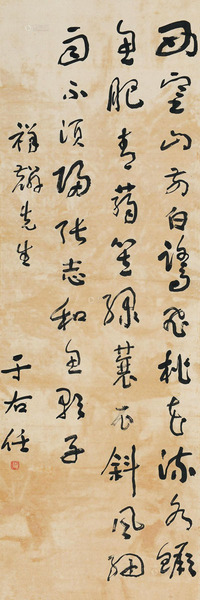 西塞山前白鹭飞桃花流水鳜
鱼肥青蒻笠绿蓑衣斜风细
雨不须归张志和鱼歌子
祥麟先生
于右任